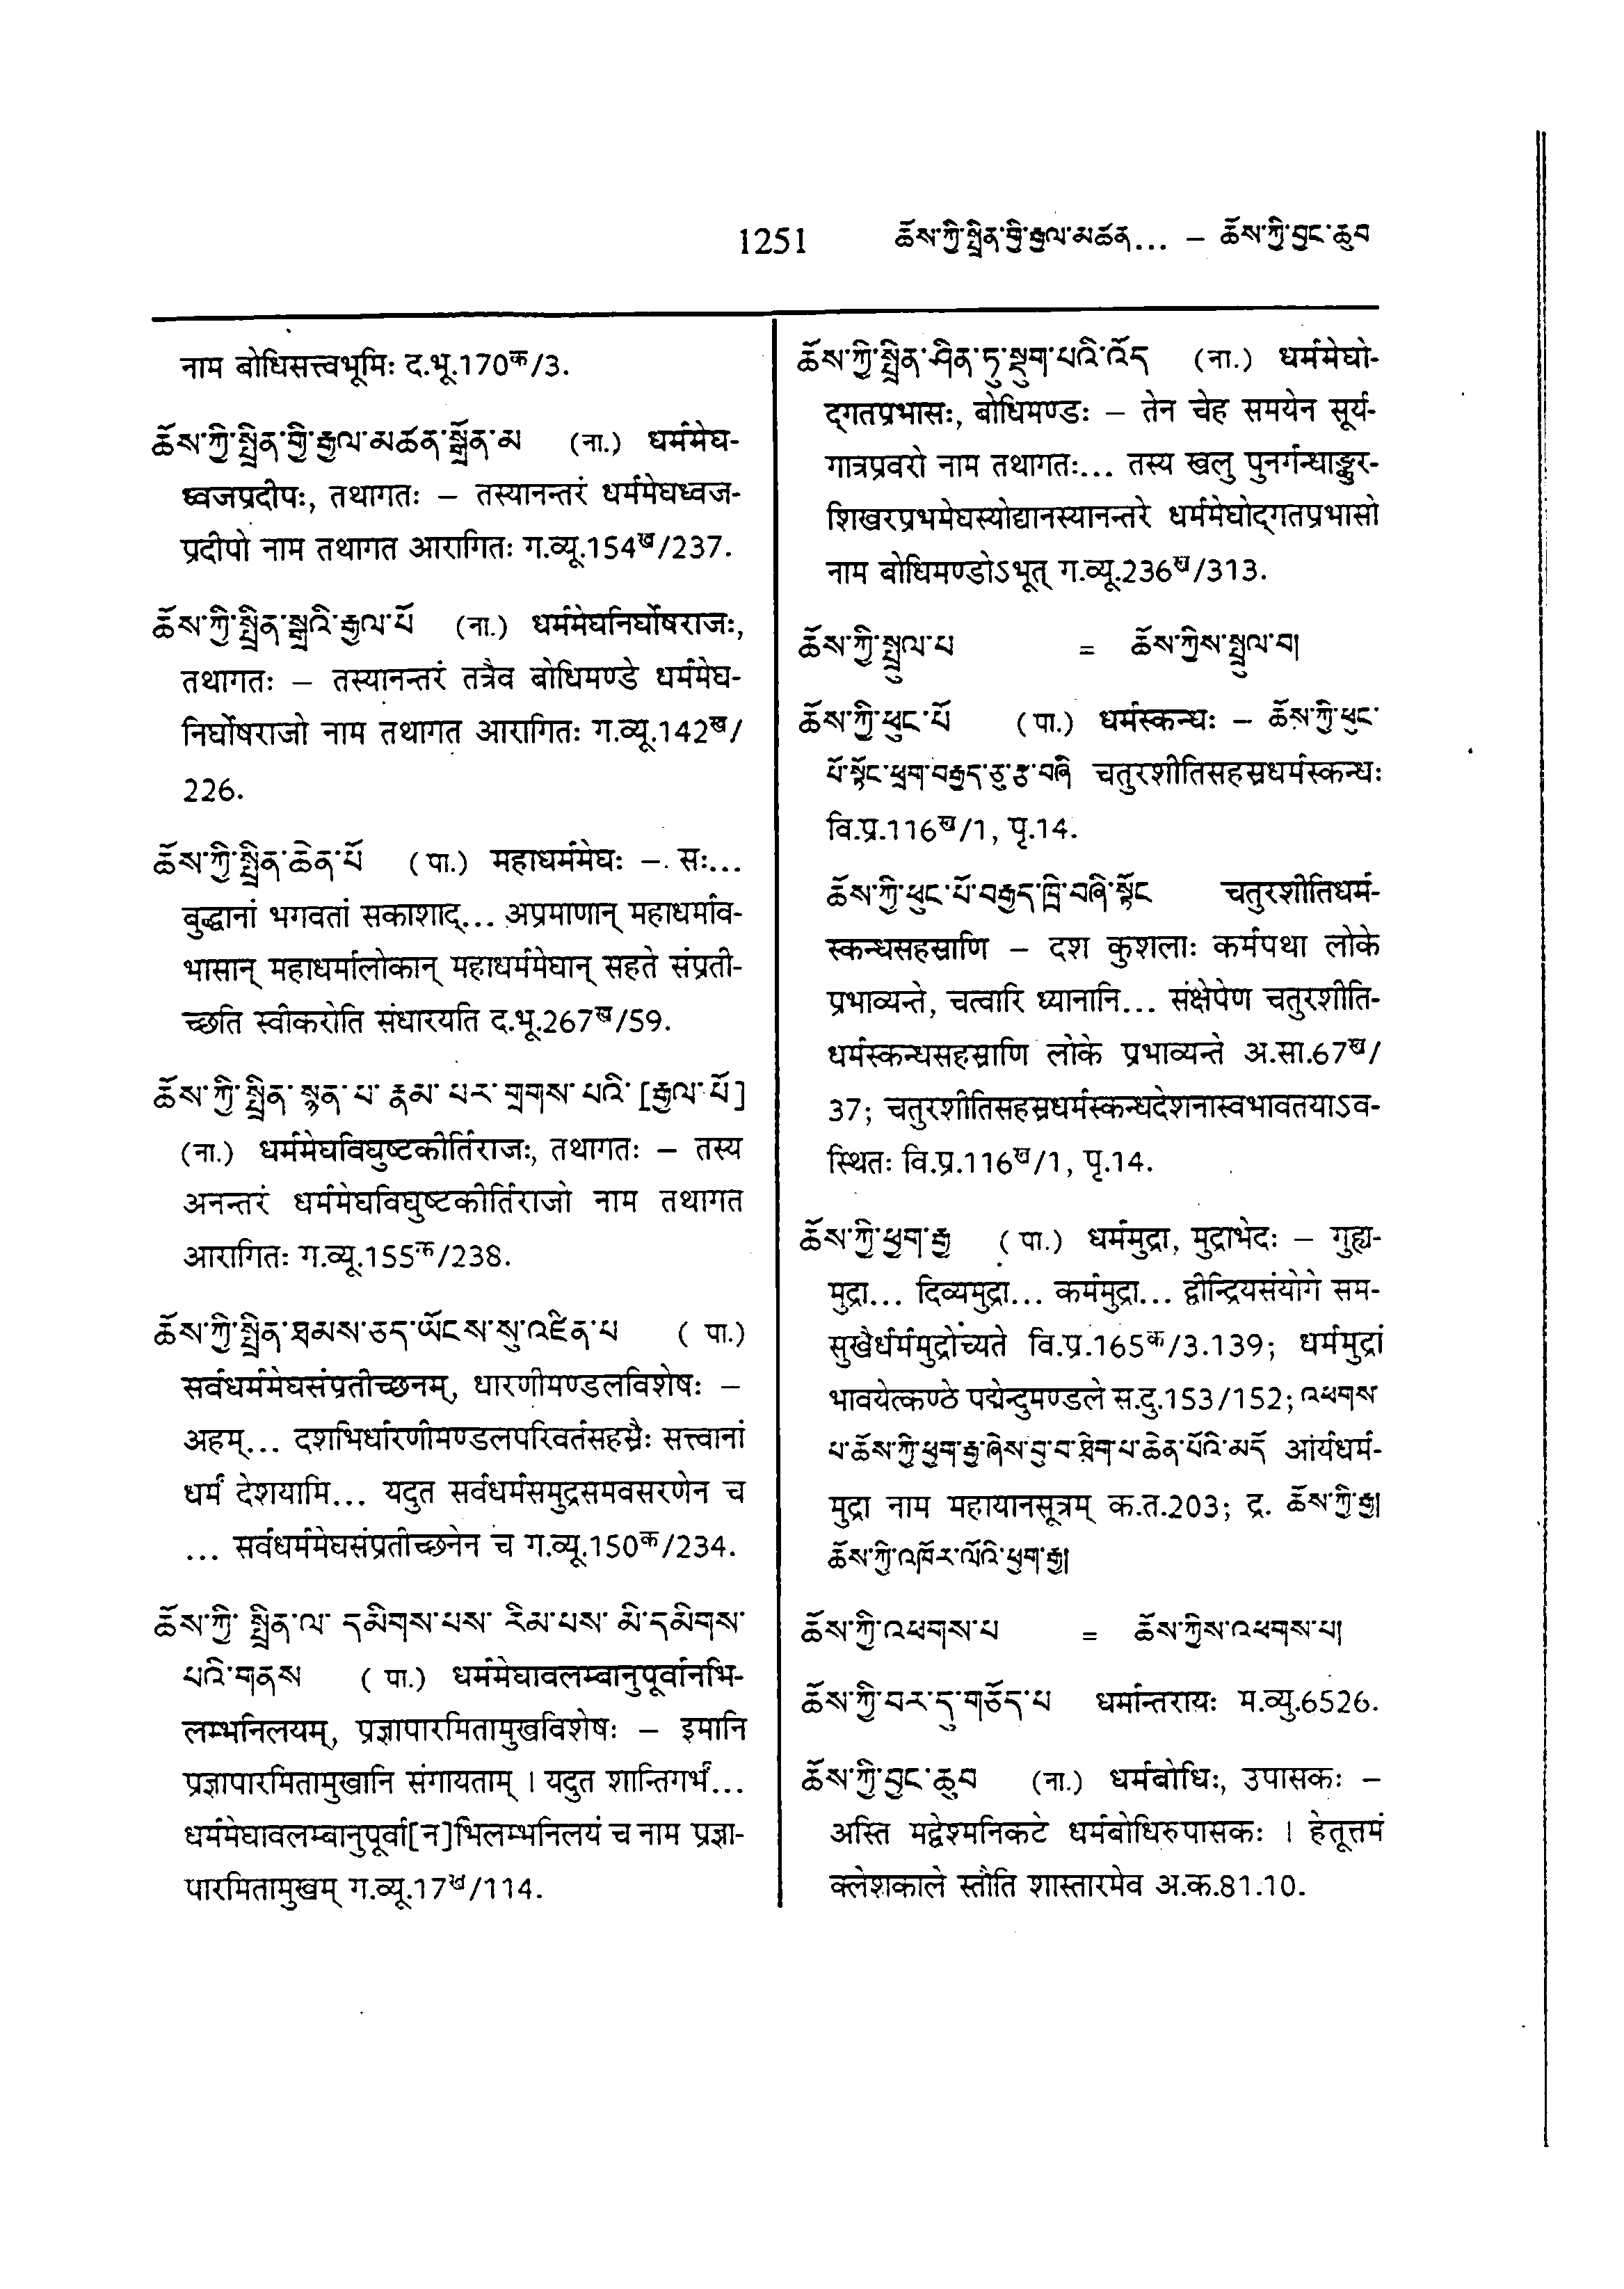 1251 ཆོས་ཀྱི་སྤྲིན་གྱི་རྒྱལ་མཚན... – ཆོས་ཀྱི་བྱང་ཆུབ
नाम बोधिसत्त्वभूमिः द.भू.170क/3.
ཆོས་ཀྱི་སྤྲིན་གྱི་རྒྱལ་མཚན་སྒྲོན་མ (ना.) धर्ममेघ-
ध्वजप्रदीपः, तथागतः – तस्यानन्तरं धर्ममेघध्वज-
प्रदीपो नाम तथागत आरागितः ग.व्यू.154ख/237.
ཆོས་ཀྱི་སྤྲིན་སྒྲའི་རྒྱལ་པོ (ना.) धर्ममेघनिर्घोषराजः,
तथागतः – तस्यानन्तरं तत्रैव बोधिमण्डे धर्ममेघ-
निर्घोषराजो नाम तथागत आरागितः ग.व्यू.142ख/
226.
ཆོས་ཀྱི་སྤྲིན་ཆེན་པོ (पा.) महाधर्ममेघः – सः...
बुद्धानां भगवतां सकाशाद्... अप्रमाणान् महाधर्माव-
भासान् महाधर्मालोकान् महाधर्ममेघान् सहते संप्रती-
च्छति स्वीकरोति संधारयति द.भू.267ख/59.
ཆོས་ཀྱི་སྤྲིན་སྙན་པ་རྣམ་པར་གྲགས་པའི་[རྒྱལ་པོ]
(ना.) धर्ममेघविघुष्टकीर्तिराजः, तथागतः – तस्य
अनन्तरं धर्ममेघविघुष्टकीर्तिराजो नाम तथागत
आरागितः ग.व्यू.155क/238.
ཆོས་ཀྱི་སྤྲིན་ཐམས་ཅད་ཡོངས་སུ་འཛིན་པ (पा.)
सर्वधर्ममेघसंप्रतीच्छनम्, धारणीमण्डलविशेषः –
अहम्... दशभिर्धारणीमण्डलपरिवर्तसहस्रैः सत्त्वानां
धर्मं देशयामि... यदुत सर्वधर्मसमुद्रसमवसरणेन च
... सर्वधर्ममेघसंप्रतीच्छनेन च ग.व्यू.150क/234.
ཆོས་ཀྱི་སྤྲིན་ལ་དམིགས་པས་རིམ་པས་མི་དམིགས་
པའི་གནས (पा.) धर्ममेघावलम्बानुपूर्वानभि-
लम्भनिलयम्, प्रज्ञापारमितामुखविशेषः – इमानि
प्रज्ञापारमितामुखानि संगायताम् । यदुत शान्तिगर्भं...
धर्ममेघावलम्बानुपूर्वा[न]भिलम्भनिलयं च नाम प्रज्ञा-
पारमितामुखम् ग.व्यू.17ख/114.
ཆོས་ཀྱི་སྤྲིན་ཤིན་ཏུ་སྡུག་པའི་འོད (ना.) धर्ममेघो-
द्गतप्रभासः, बोधिमण्डः – तेन चेह समयेन सूर्य-
गात्रप्रवरो नाम तथागतः... तस्य खलु पुनर्गन्धाङ्कुर-
शिखरप्रभमेघस्योद्यानस्यानन्तरे धर्ममेघोद्गतप्रभासो
नाम बोधिमण्डोऽभूत् ग.व्यू.236ख/313.
ཆོས་ཀྱི་སྤྲུལ་པ = ཆོས་ཀྱིས་སྤྲུལ་བ།
ཆོས་ཀྱི་ཕུང་པོ (पा.) धर्मस्कन्धः – ཆོས་ཀྱི་ཕུང་
པོ་སྟོང་ཕྲག་བརྒྱད་ཅུ་རྩ་བཞི चतुरशीतिसहस्रधर्मस्कन्धः
वि.प्र.116ख/1, पृ.14.
ཆོས་ཀྱི་ཕུང་པོ་བརྒྱད་ཁྲི་བཞི་སྟོང चतुरशीतिधर्म-
स्कन्धसहस्राणि – दश कुशलाः कर्मपथा लोके
प्रभाव्यन्ते, चत्वारि ध्यानानि... संक्षेपेण चतुरशीति-
धर्मस्कन्धसहस्राणि लोके प्रभाव्यन्ते अ.सा.67ख/
37; चतुरशीतिसहस्रधर्मस्कन्धदेशनास्वभावतयाऽव-
स्थितः वि.प्र.116ख/1, पृ.14.
ཆོས་ཀྱི་ཕྱག་རྒྱ (पा.) धर्ममुद्रा, मुद्राभेदः – गुह्य-
मुद्रा... दिव्यमुद्रा... कर्ममुद्रा... द्वीन्द्रियसंयोगे सम-
सुखैर्धर्ममुद्रोच्यते वि.प्र.165क/3.139; धर्ममुद्रां
भावयेत्कण्ठे पद्मेन्दुमण्डले स.दु.153/152; འཕགས་
པ་ཆོས་ཀྱི་ཕྱག་རྒྱ་ཞེས་བྱ་བ་ཐེག་པ་ཆེན་པོའི་མདོ आर्यधर्म-
मुद्रा नाम महायानसूत्रम् क.त.203; द्र. ཆོས་ཀྱི་རྒྱ།
ཆོས་ཀྱི་འཁོར་ལོའི་ཕྱག་རྒྱ།
ཆོས་ཀྱི་འཕགས་པ = ཆོས་ཀྱིས་འཕགས་པ།
ཆོས་ཀྱི་བར་དུ་གཅོད་པ धर्मान्तरायः म.व्यु.6526.
ཆོས་ཀྱི་བྱང་ཆུབ (ना.) धर्मबोधिः, उपासकः –
अस्ति मद्वेश्मनिकटे धर्मबोधिरुपासकः । हेतूत्तमं
क्लेशकाले स्तौति शास्तारमेव अ.क.81.10.